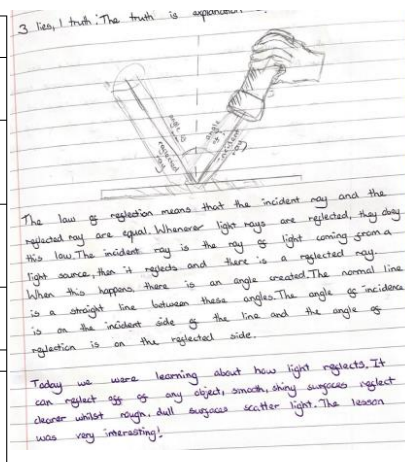 3 lies, 1 truth. The truth is explanation
angle of
angle of
reflected ray
incident ray
The law of reflection means that the incident ray and the
reflected ray are equal. Whenever light rays are reflected, they obey
this law. The incident ray is the ray of light coming from a
light source, then it reflects and there is a reflected ray.
When this happens there is an angle created. The normal line
is a straight line between these angles. The angle of incidence
is on the incident side of the line and the angle of
reflection is on the reflected side.
Today we were learning about how light reflects. It
can reflect off of any object, smooth, shiny surfaces reflect
clearer whilst rough, dull surfaces scatter light. The lesson
was very interesting!